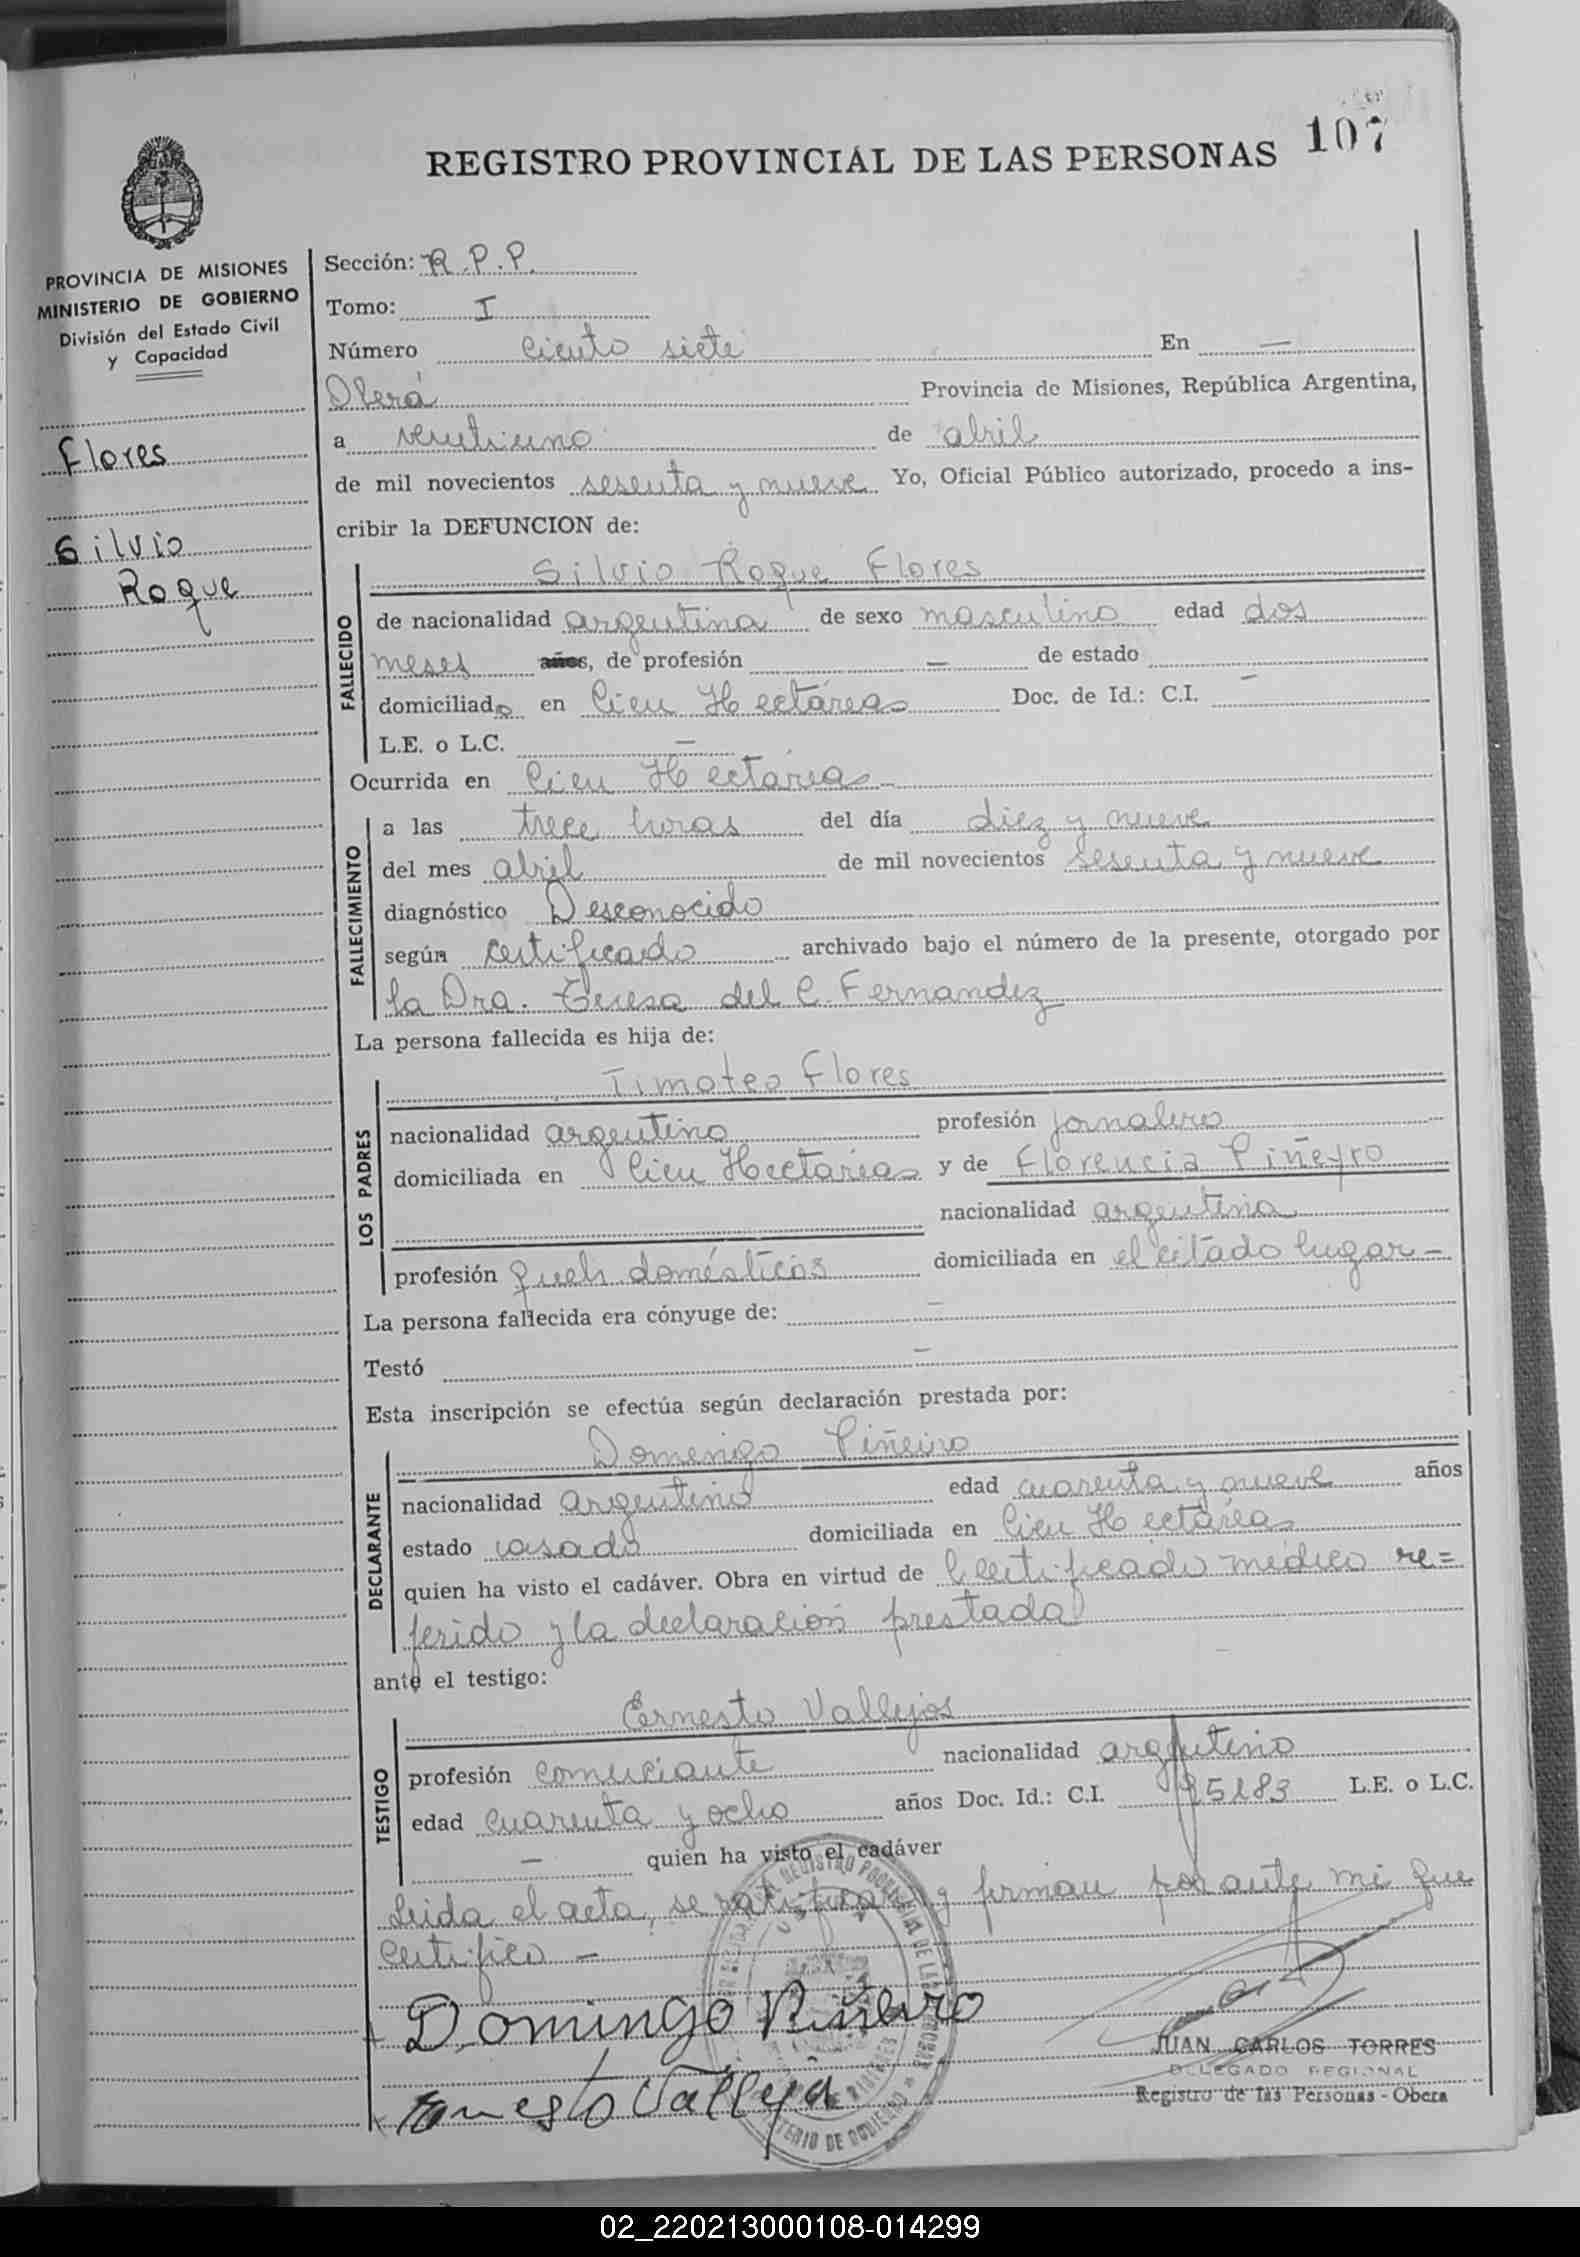 107
REGISTRO PROVINCIAL DE LAS PERSONAS
PROVINCIA DE MISIONES
MINISTERIO DE GOBIERNO
División del Estado Civil
y Capacidad
Flores
Silvio
Roque
Sección: R.P.P.
Tomo: I
Número ciento siete En —
Oberá Provincia de Misiones, República Argentina,
a veintiuno de abril
de mil novecientos sesenta y nueve Yo, Oficial Público autorizado, procedo a ins-
cribir la DEFUNCION de:
FALLECIDO
Silvio Roque Flores
de nacionalidad argentina de sexo masculino edad dos
meses años, de profesión — de estado —
domiciliado en Cien Hectáreas Doc. de Id.: C.I.
L.E. o L.C. —
Ocurrida en Cien Hectáreas
FALLECIMIENTO
a las trece horas del día diez y nueve
del mes abril de mil novecientos sesenta y nueve
diagnóstico Desconocido
según certificado archivado bajo el número de la presente, otorgado por
la Dra. Teresa del C. Fernandez
La persona fallecida es hija de:
LOS PADRES
Timoteo Flores
nacionalidad argentino profesión jornalero
domiciliada en Cien Hectáreas y de Florencia Piñeyro
nacionalidad argentina
profesión queh domésticos domiciliada en el citado lugar —
La persona fallecida era cónyuge de: —
Testó —
Esta inscripción se efectúa según declaración prestada por:
DECLARANTE
Domingo Piñeiro
nacionalidad argentino edad cuarenta y nueve años
estado casado domiciliada en Cien Hectáreas
quien ha visto el cadáver. Obra en virtud de Certificado médico re=
ferido y la declaración prestada
ante el testigo:
TESTIGO
Ernesto Vallejos
profesión comerciante nacionalidad argentino
edad cuarenta y ocho años Doc. Id.: C.I. L.E. o L.C.
— quien ha visto el cadáver
Leida el acta, se ratifican y firman por ante mi que
certifico —
Domingo Piñeiro
Ernesto Vallejo
JUAN CARLOS TORRES
DELEGADO REGIONAL
Registro de las Personas - Obera
02_220213000108-014299